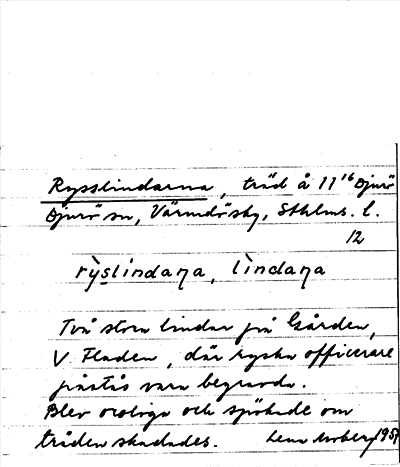 Rysslindarna, träd å 11¹⁶ Djurö
Djurö sn, Värmdö sky, Sthlms. l.
12
rỳslindaɳa, lìndaɳa
Två stora lindar på Gården,
V. Fladen, där ryska officerare
påstås vara begravda.
Blev oroliga och spökade om
träden skadades. Lena Moberg 195